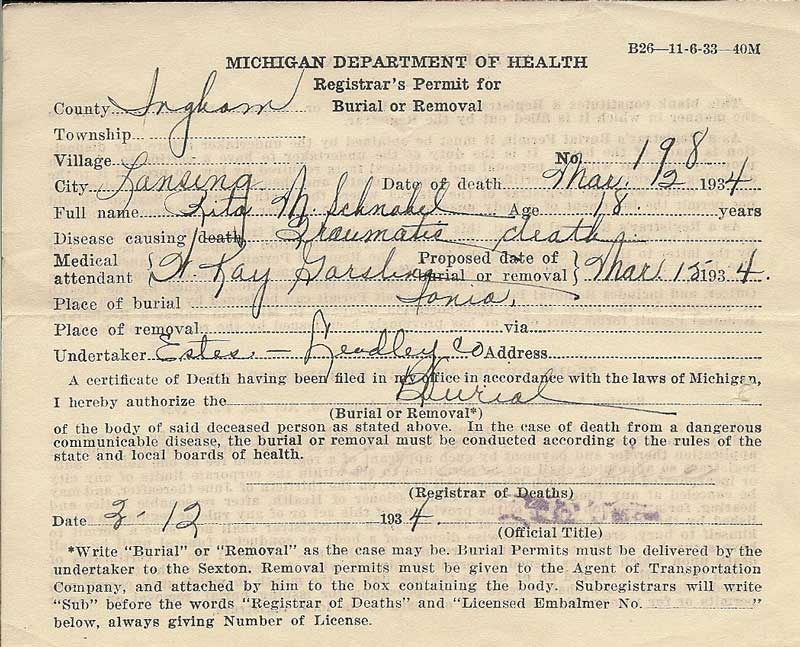 B26—11-6-33—40M
MICHIGAN DEPARTMENT OF HEALTH
Registrar's Permit for
County Ingham Burial or Removal
Township
Village No. 198
City Lansing Date of death Mar. 12 1934
Full name Rita M. Schnabel Age 18 years
Disease causing death Traumatic death
Medical attendant W. Kay Proposed date of burial or removal Mar 15 1934.
Place of burial Ionia,
Place of removal via
Undertaker Estes - Leadley Co Address
A certificate of Death having been filed in my office in accordance with the laws of Michigan,
I hereby authorize the Burial
(Burial or Removal*)
of the body of said deceased person as stated above. In the case of death from a dangerous
communicable disease, the burial or removal must be conducted according to the rules of the
state and local boards of health.
(Registrar of Deaths)
Date 3-12 1934.
(Official Title)
*Write "Burial" or "Removal" as the case may be. Burial Permits must be delivered by the
undertaker to the Sexton. Removal permits must be given to the Agent of Transportation
Company, and attached by him to the box containing the body. Subregistrars will write
"Sub" before the words "Registrar of Deaths" and "Licensed Embalmer No. "
below, always giving Number of License.